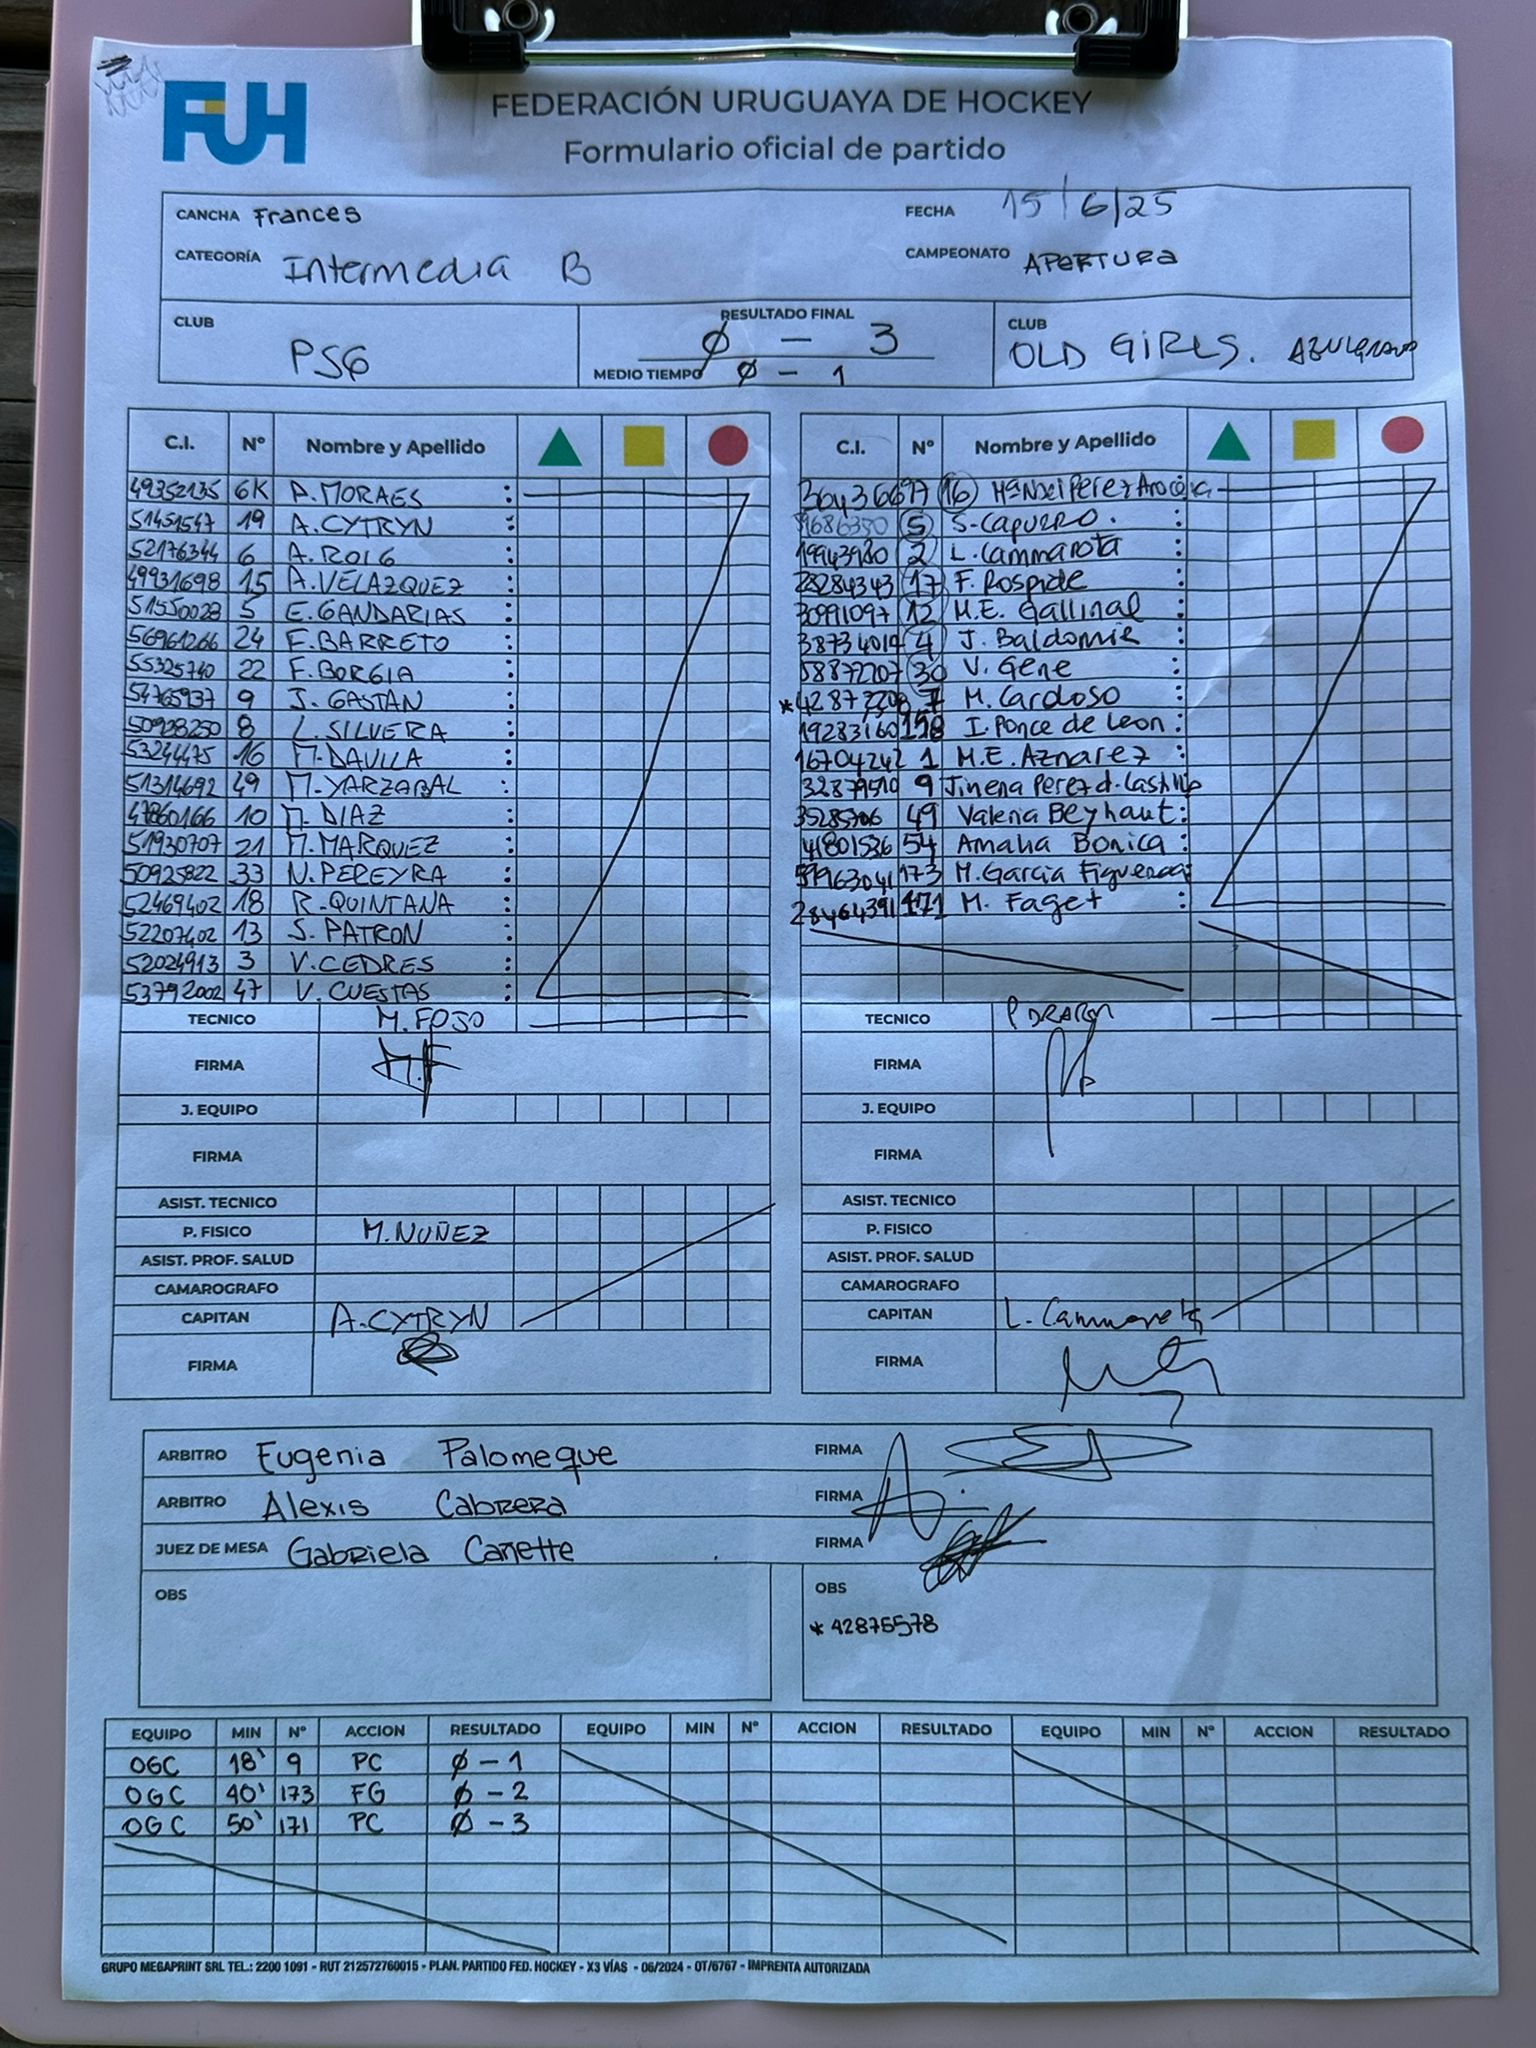 FUH
FEDERACIÓN URUGUAYA DE HOCKEY
Formulario oficial de partido
CANCHA Frances FECHA 15/6/25
CATEGORÍA Intermedia B CAMPEONATO APERTURA
CLUB PSG RESULTADO FINAL Ø - 3 CLUB OLD GIRLS. AZULGRANA
MEDIO TIEMPO Ø - 1
C.I. Nº Nombre y Apellido C.I. Nº Nombre y Apellido
49352135 GK P. MORAES : 36436697 16 Mª Noel Perez Arocena
51451547 19 A. CYTRYN : 5 S. Capurro. :
52176344 6 A. ROIG : 19943980 2 L. Cammarota :
49931698 15 A. VELAZQUEZ : 28284343 17 F. Rospide :
51550028 5 E. GANDARIAS : 30991097 12 M.E. Gallinal :
56961266 24 E. BARRETO : 38734019 4 J. Baldomir :
55325740 22 F. BORGIA : 58872207 30 V. Gene :
54765937 9 J. GASTAN : * 7 M. Cardoso :
50928250 8 L. SILVERA : 19283160 I. Ponce de Leon :
53244475 16 M. DAVILA : 16704242 1 M.E. Aznarez :
51314692 49 M. YARZABAL : 9 Jimena Perez d. Castillo
47860166 10 M. DIAZ : 35285706 49 Valeria Beyhaut :
51930707 21 M. MARQUEZ : 41801536 54 Amalia Bonica :
50925822 33 N. PEREYRA : 173 M. Garcia Figueroa :
52469402 18 R. QUINTANA : 28464391 171 M. Faget :
52207402 13 S. PATRON :
52024913 3 V. CEDRES :
53792002 47 V. CUESTAS :
TECNICO M. FOJO TECNICO
FIRMA FIRMA
J. EQUIPO J. EQUIPO
FIRMA FIRMA
ASIST. TECNICO ASIST. TECNICO
P. FISICO M. NUÑEZ P. FISICO
ASIST. PROF. SALUD ASIST. PROF. SALUD
CAMAROGRAFO CAMAROGRAFO
CAPITAN A. CYTRYN CAPITAN L. Cammarota
FIRMA FIRMA
ARBITRO Eugenia Palomeque FIRMA
ARBITRO Alexis Cabrera FIRMA
JUEZ DE MESA Gabriela Canette FIRMA
OBS OBS
* 42875578
EQUIPO MIN Nº ACCION RESULTADO EQUIPO MIN Nº ACCION RESULTADO EQUIPO MIN Nº ACCION RESULTADO
OGC 18' 9 PC Ø - 1
OGC 40' 173 FG Ø - 2
OGC 50' 171 PC Ø - 3
GRUPO MEGAPRINT SRL TEL.: 2200 1091 - RUT 212572760015 - PLAN. PARTIDO FED. HOCKEY - X3 VÍAS - 06/2024 - OT/6767 - IMPRENTA AUTORIZADA